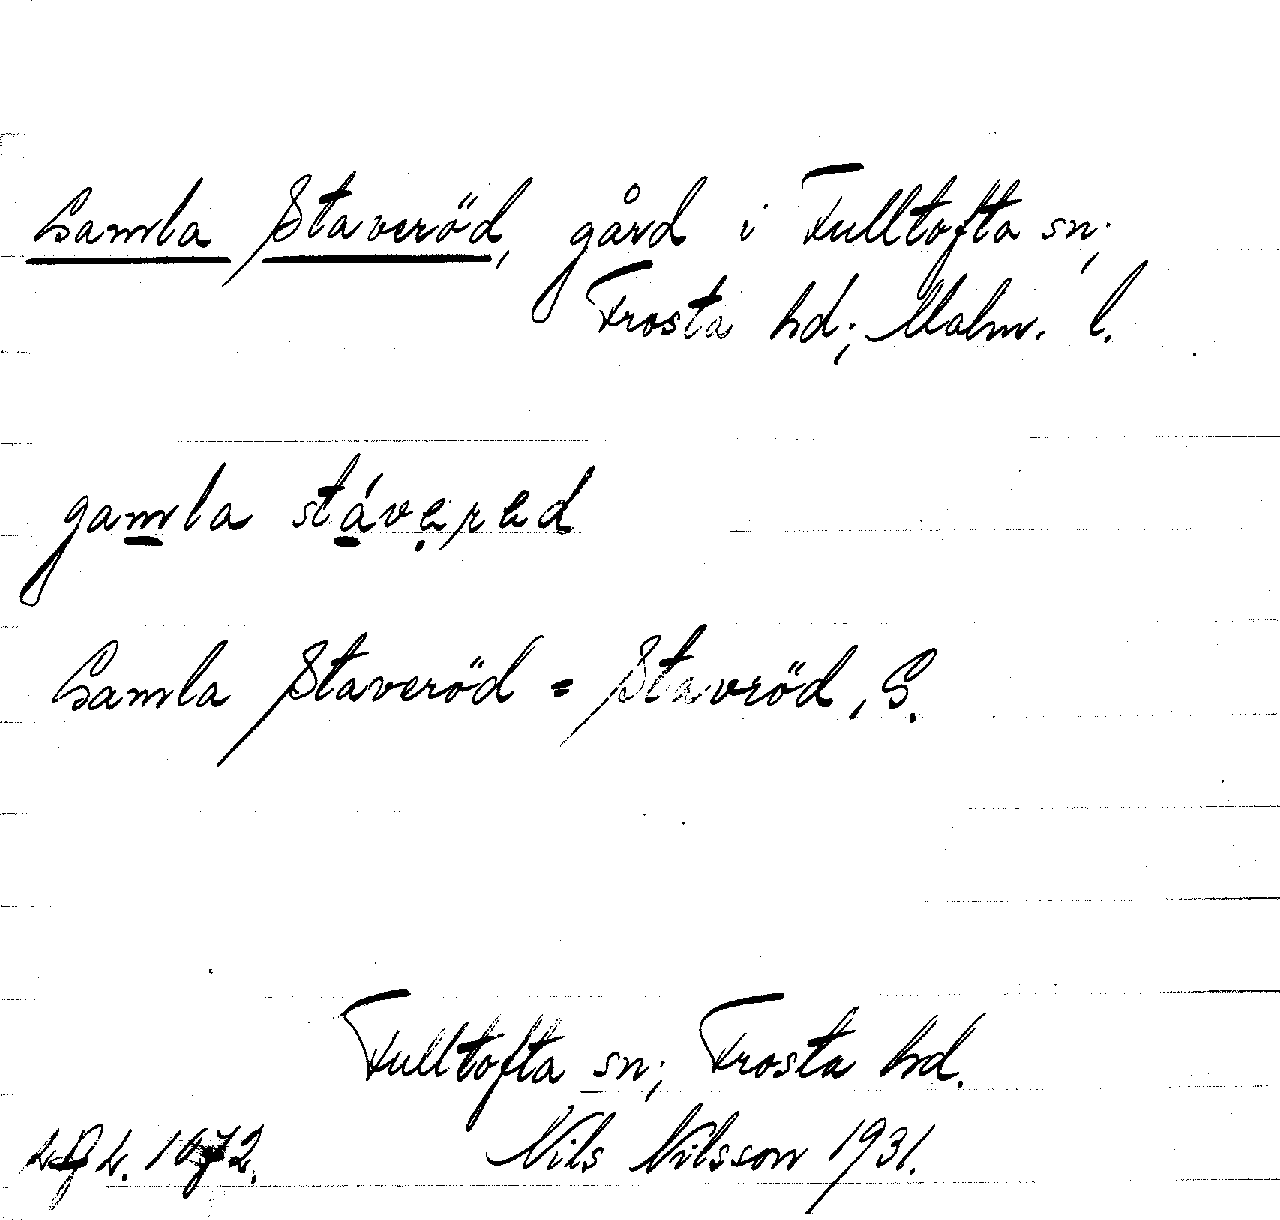 Gamla Staveröd, gård i Fulltofta sn;
Frosta hd; Malm. l.
gamla stávered
Gamla Staveröd = Stavröd, G.
Fulltofta sn; Frosta hd.
Nils Nilsson 1931.